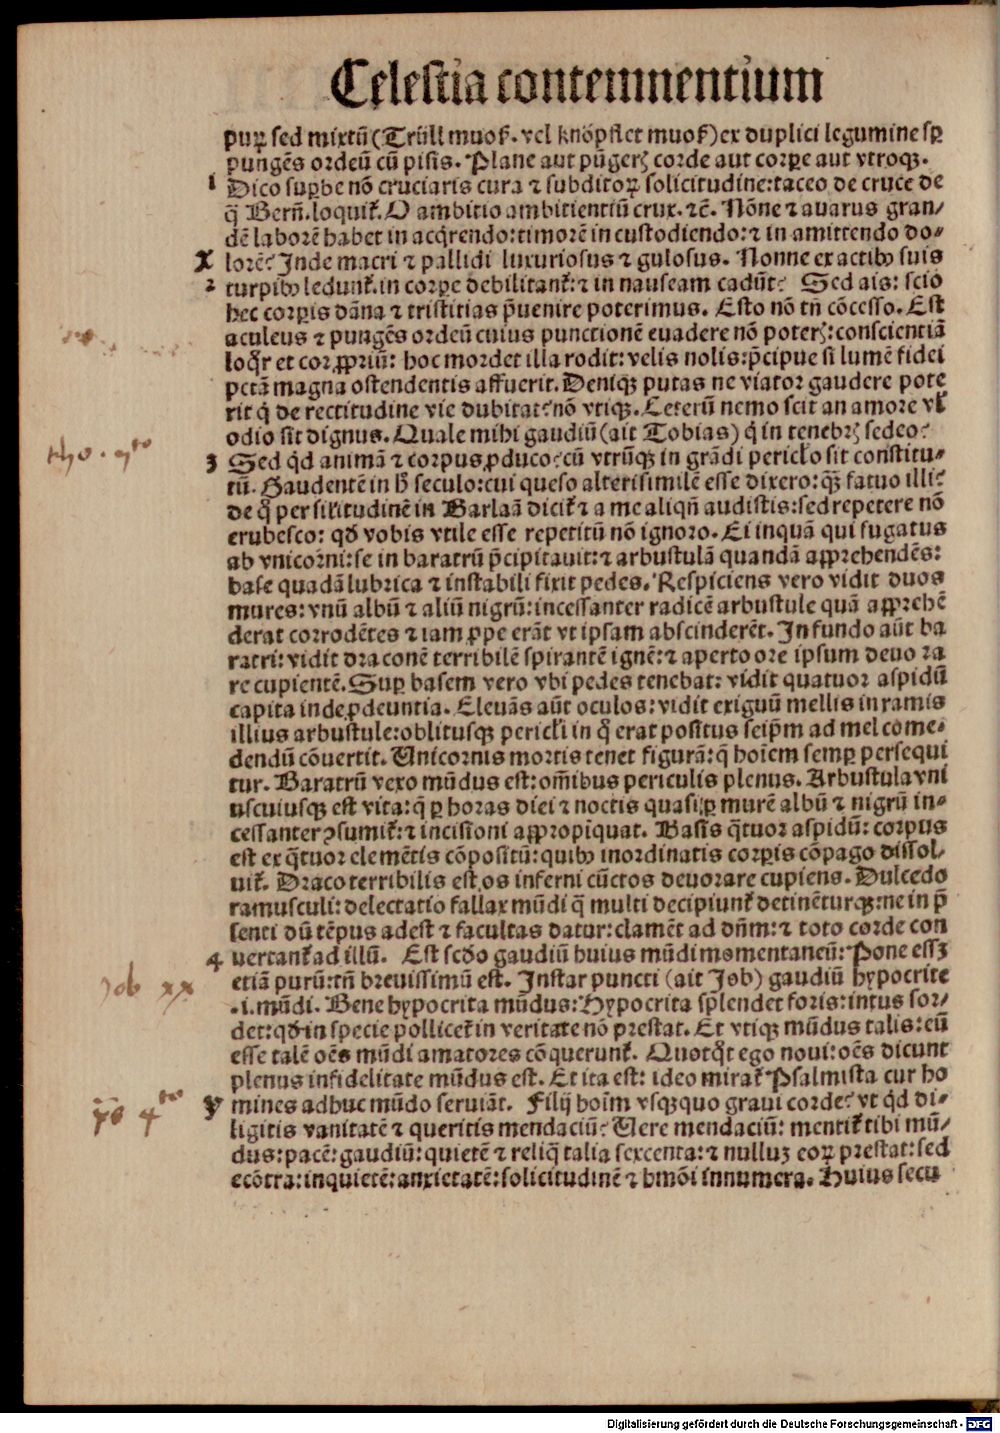 Celestia contemnentium
puꝝ sed mixtū (Trüll muoß. vel knöpflet muoß) ex duplici legumine sꝑ
pungēs ordeū cū pisis. Plane aut pūgerꝭ corde aut corꝑe aut vtroqꝫ.
1 Dico suꝑbe nō cruciaris cura ⁊ subditoꝝ solicitudine: taceo de cruce de
q̄ Berñ. loquit᷑. O ambitio ambitientiū crux. ⁊c̄. Nōne ⁊ auarus gran/
dē laborē habet in acq̄rendo: timorē in custodiendo: ⁊ in amittendo do/
X lorē? Inde macri ⁊ pallidi luxuriosus ⁊ gulosus. Nonne ex actibꝰ suis
2 turpibꝰ ledunt᷑. in corꝑe debilitant᷑: ⁊ in nauseam cadūt? Sed ais: scio
hec corꝑis dāna ⁊ tristitias p̄uenire poterimus. Esto nō tn̄ cōcesso. Est
aculeus ⁊ pungēs ordeū cuius punctionē euadere nō poterꝭ: conscientiā
loq̄r et cor ꝓpriū: hoc mordet illa rodit: velis nolis: p̄cipue si lumē fidei
pctā magna ostendentis affuerit. Deniqꝫ putas ne viator gaudere pote
rit q̄ de rectitudine vie dubitat? nō vtiqꝫ. Ceterū nemo scit an amore vl᷑
odio sit dignus. Quale mihi gaudiū (ait Tobias) q̄ in tenebrꝭ sedeo?
tho. 5to
3 Sed qd̄ animā ⁊ corpus ꝓduco? cū vtrūqꝫ in grādi pericl̄o sit constitu/
tū. Gaudentē in h̄ seculo: cui queso alteri similē esse dixero: qꝫ fatuo illi?
de q̄ per sil̄itudinē in Barlaā dicit᷑ ⁊ a me aliqn̄ audistis: sed repetere nō
erubesco: qd̄ vobis vtile esse repetitū nō ignoro. Ei inquā qui fugatus
ab vnicorni: se in baratrū p̄cipitauit: ⁊ arbustulā quandā apprehendēs:
base quadā lubrica ⁊ instabili fixit pedes. Respiciens vero vidit duos
mures: vnū albū ⁊ aliū nigrū: incessanter radicē arbustule quā apprehē
derat corrodētes ⁊ iam ꝓpe erāt vt ipsam abscinderēt. In fundo aūt ba
ratri: vidit draconē terribilē spirantē ignē: ⁊ aperto ore ipsum deuora
re cupientē. Suꝑ basem vero vbi pedes tenebat: vidit quatuor aspidū
capita inde ꝓdeuntia. Eleuās aūt oculos: vidit exiguū mellis in ramis
illius arbustule: oblitusqꝫ pericl̄i in q̄ erat positus seip̄m ad mel come/
dendū cōuertit. Unicornis mortis tenet figurā: q̄ hoīem semꝑ persequi
tur. Baratrū vero mūdus est: oībus periculis plenus. Arbustula vni
uscuiusqꝫ est vita: q̄ ꝑ horas diei ⁊ noctis quasi ꝑ murē albū ⁊ nigrū in/
cessanter ꝯsumit᷑: ⁊ incisioni appropīquat. Basis q̄tuor aspidū: corpus
est ex q̄tuor elemētis cōpositū: quibꝰ inordinatis corꝑis cōpago dissol/
uit᷑. Draco terribilis est os inferni cūctos deuorare cupiens. Dulcedo
ramusculi: delectatio fallax mūdi q̄ multi decipiunt᷑ detinēturqꝫ: ne in p̄
senti dū tēpus adest ⁊ facultas datur: clamēt ad dn̄m: ⁊ toto corde con
4 uertant᷑ ad illū. Est scd̄o gaudiū huius mūdi momentaneū: Pone essꝫ
Job xx
etiā purū: tn̄ breuissimū est. Instar puncti (ait Job) gaudiū hypocrite
.i. mūdi. Bene hypocrita mūdus: Hypocrita splendet foris: intus sor/
det: qd̄ in specie pollicet᷑ in veritate nō prestat. Et vtiqꝫ mūdus talis: eū
esse talē oēs mūdi amatores cōquerunt᷑. Quotq̄t ego noui: oēs dicunt
plenus infidelitate mūdus est. Et ita est: ideo mirat᷑ Psalmista cur ho
ps 4to
y mines adhuc mūdo seruiāt. Filij hoīm vsqꝫquo graui corde? vt qd̄ di/
ligitis vanitatē ⁊ queritis mendaciū? Uere mendaciū: mentit᷑ tibi mū/
dus: pacē: gaudiū: quietē ⁊ reliq̄ talia sexcenta: ⁊ nullū eoꝝ prestat: sed
ecōtra: inquietē: anxietatē: solicitudinē ⁊ hmōi innumera. Huius secu
Digitalisierung gefördert durch die Deutsche Forschungsgemeinschaft - DFG